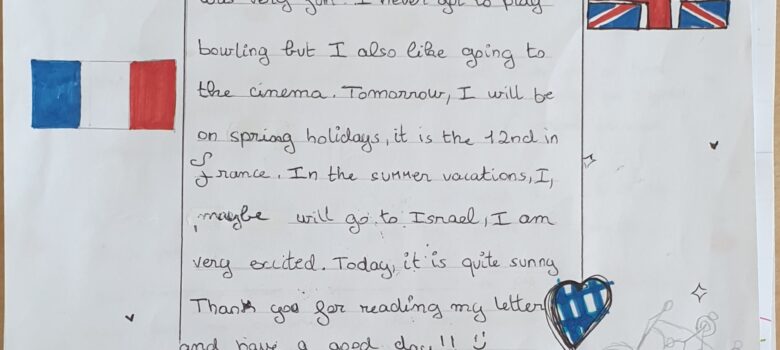 was very fun. I never got to play
bowling but I also like going to
the cinema. Tomorrow, I will be
on spring holidays, it is the 12nd in
france. In the summer vacations, I,
maybe will go to Israel, I am
very excited. Today, it is quite sunny
Thank you for reading my letter
and have a good day!! :)